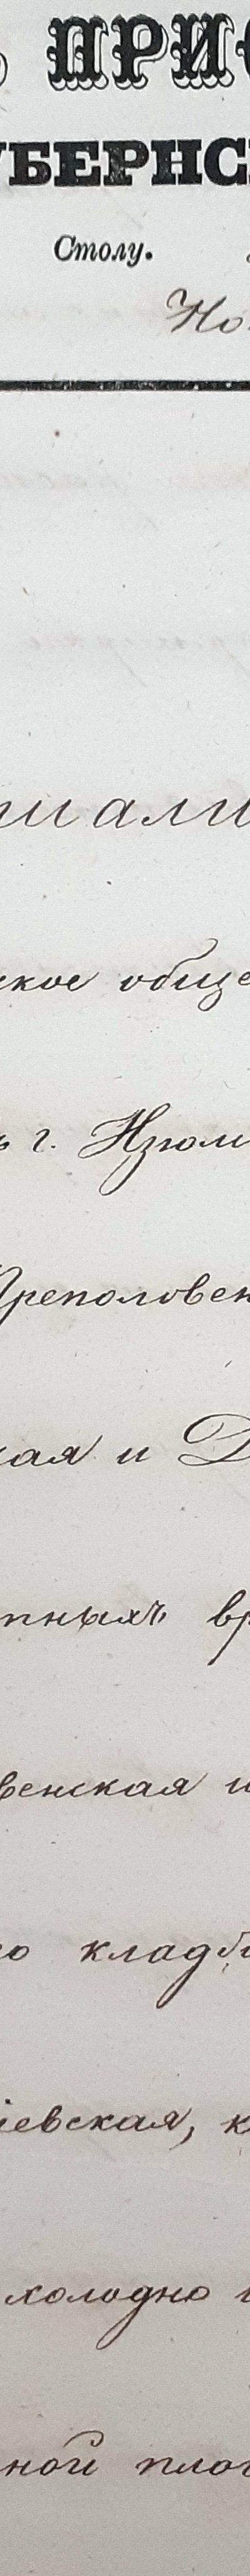 ПРИ
УБЕРНС
Столу.
Но
иали
ское обще
г. Изюм
Преполовен
кая и Д
пныхъ вр
венская и
о кладби
іевская, к
холодно
ной пло